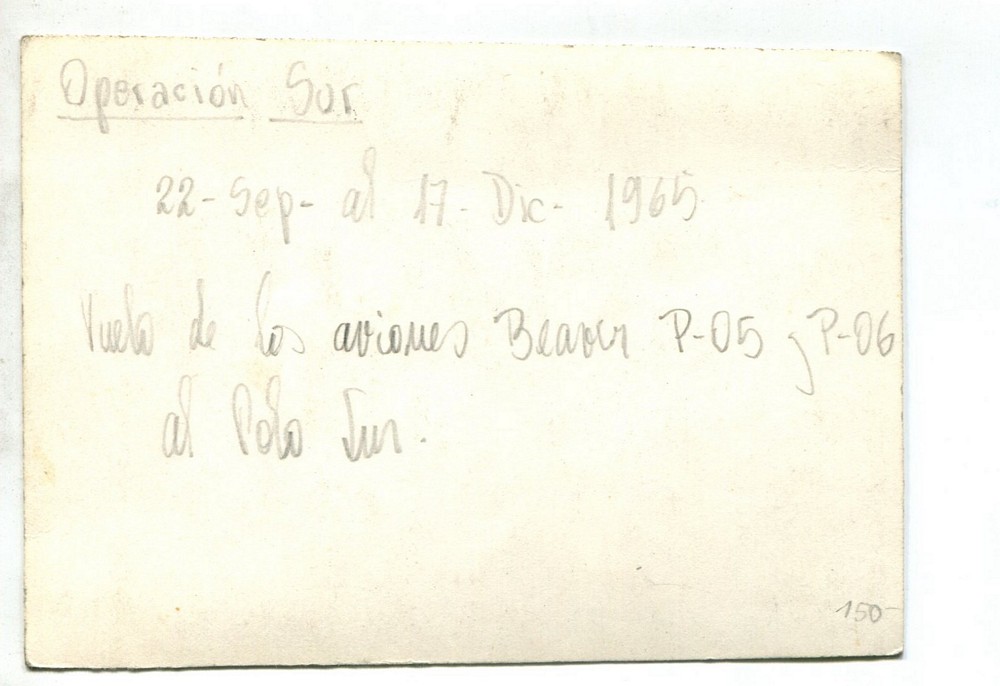 Operación Sur
22-Sep- al 17-Dic- 1965
Vuelo de los aviones Beaver P-05 y P-06
al Polo Sur.
150-